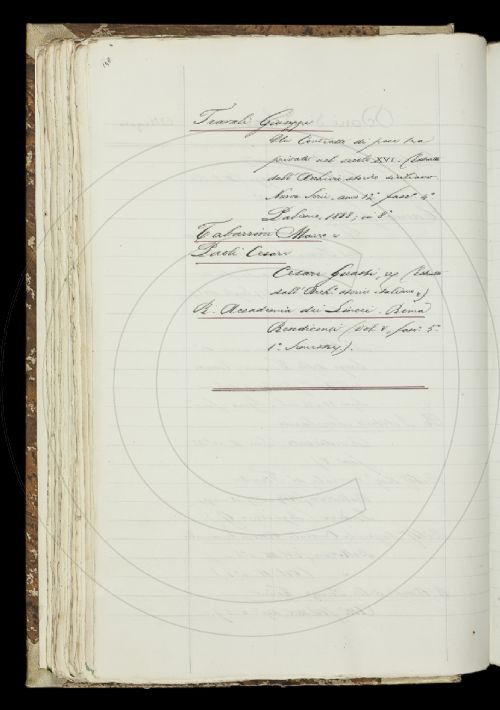 Travali Giuseppe
Un Contratto di pace tra
privati nel secolo XVI. (Estratto
dall'Archivio storico siciliano.
Nuova Serie, anno 12° fasc° 4°
Palermo, 1888; in 8°
Tabarrini Marco e
Paoli Cesare
Cesare Guasti, (Estratto
dall'Arch° storico italiano,)
R. Accademia dei Lincei. Roma
Rendiconti (Vol. fasc° 5°
1° Semestre).